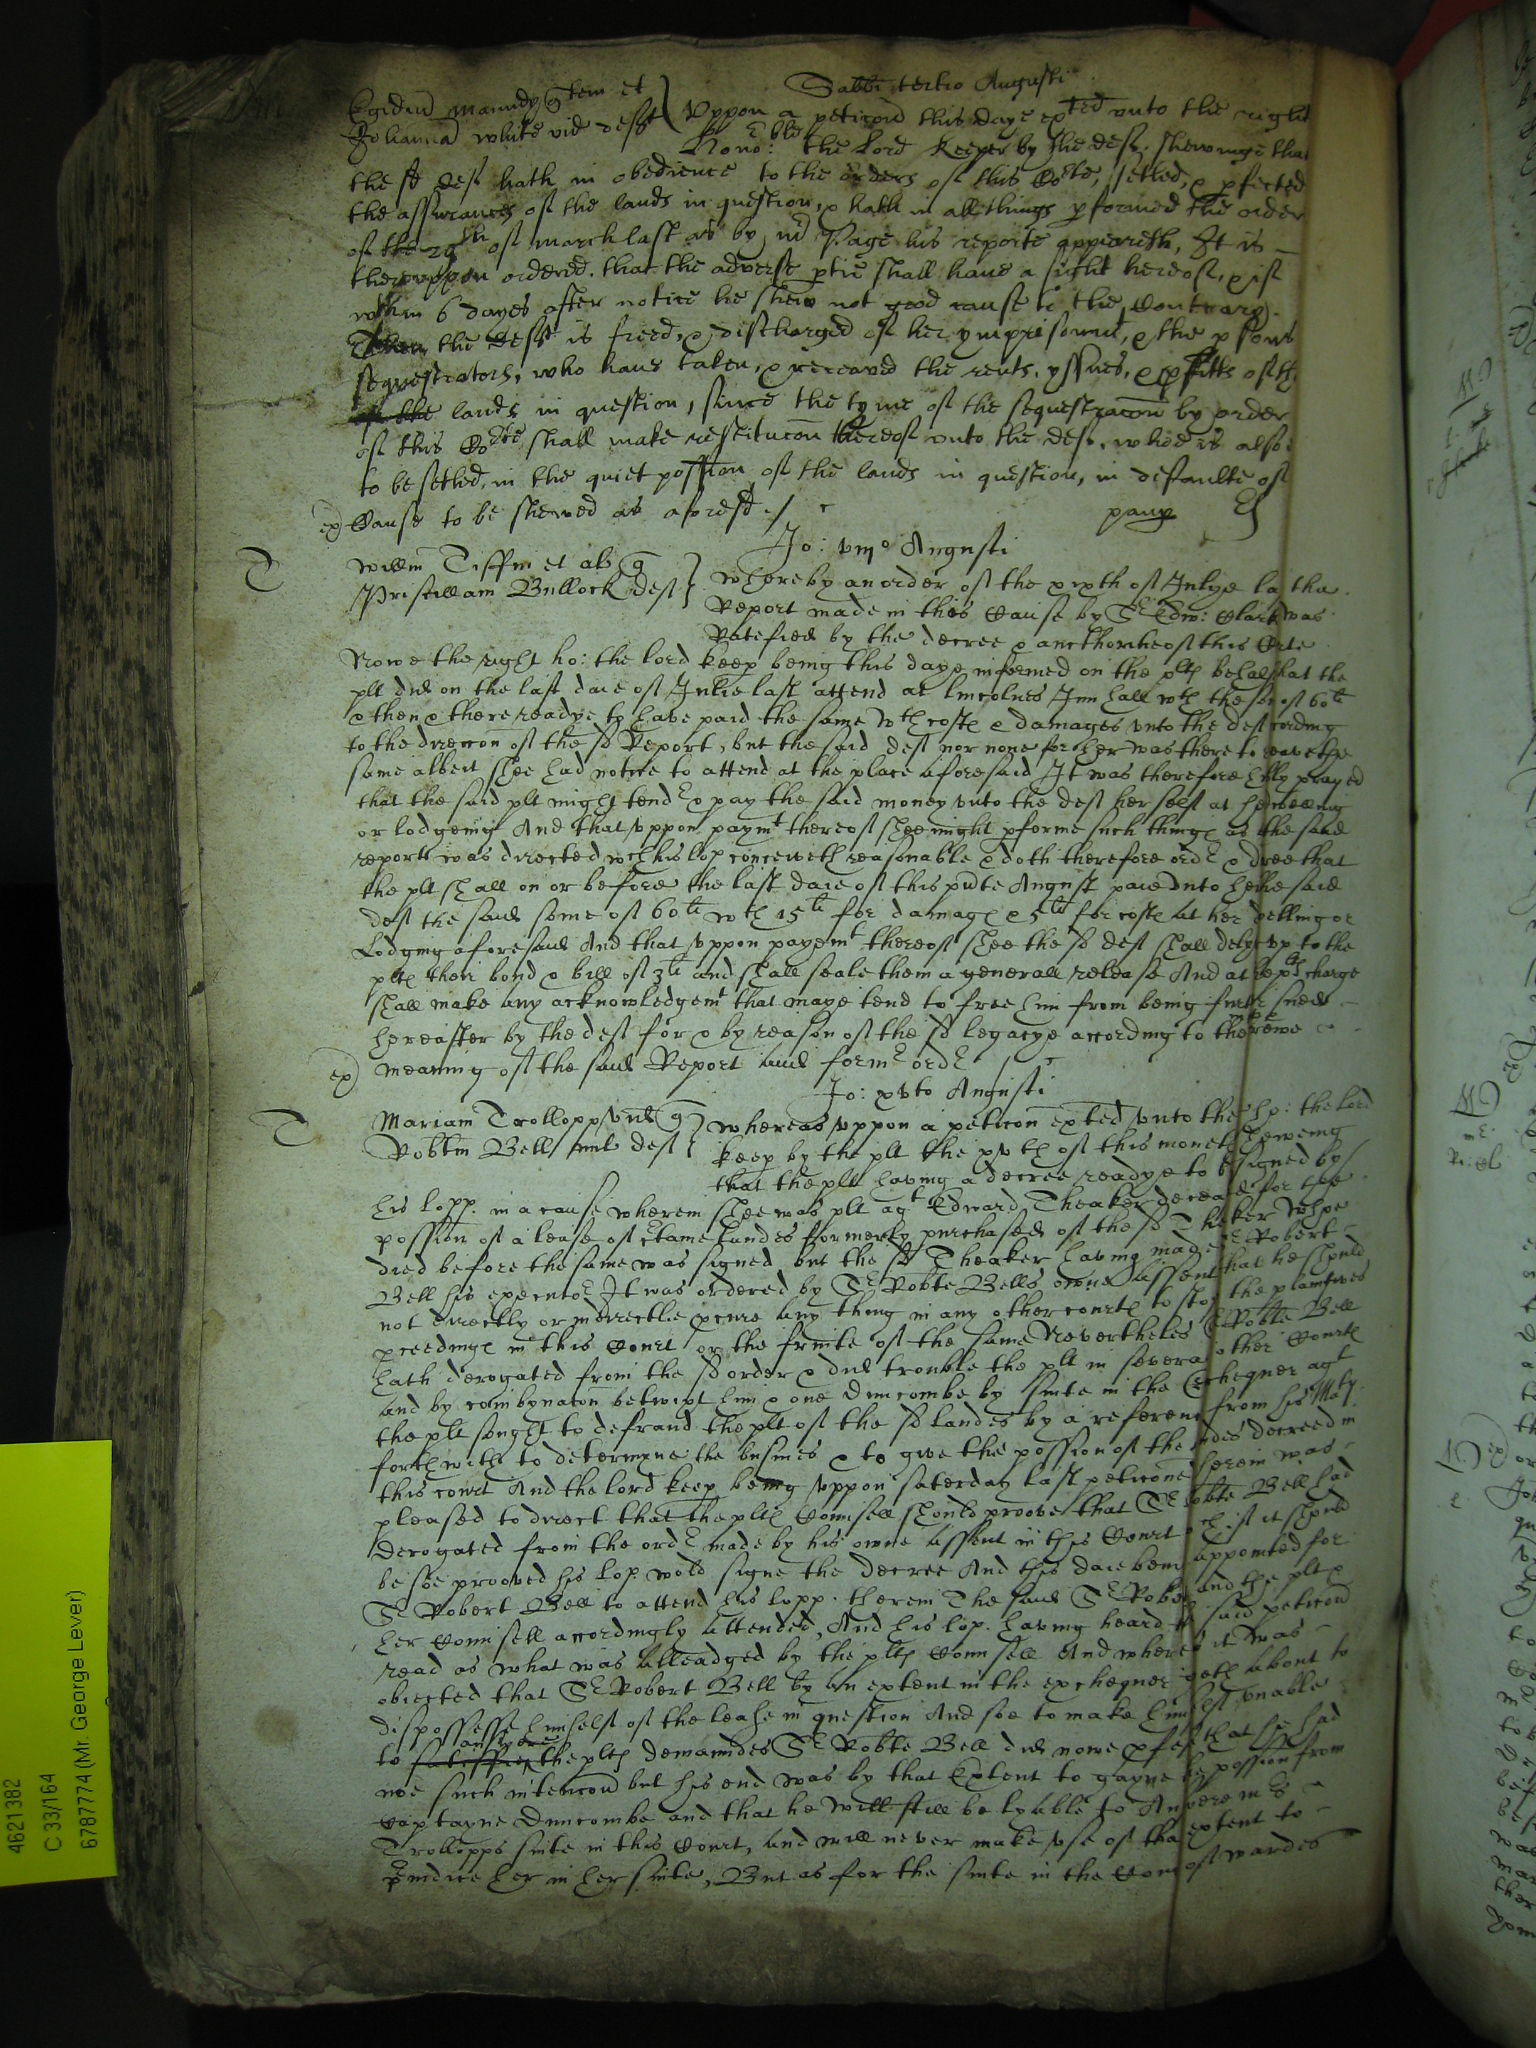 Sabbi tertio Augusti
Egidiu Maundy qtem et
Johanna White vid deft
Uppon a peticon this daye exted unto the right
hono:ble the Lord Keeper by the deft. shewinge that
the sd deft hath in obedience to the orders of this Corte, setled, & pfected
the assurances of the lands in question, & hath in all things pformed the order
of the 29th of march last as by mr Page his reporte appeareth, It is
thereuppon ordered. that the adverse ptie shall have a sight hereof, & if
wthin 6 dayes after notice he shew not good cause to the Contrary.
Then the deft is freed, & discharged of her ymprisonmt, & the psons
sequestrators, who have taken, & receaved the rents, yssues, & pfitts of th
of the lands in question, since the tyme of the sequestracon by order
of this Corte shall make restitucon thereof unto the deft, whoe is alsoe
to be setled, in the quiet possion of the lands in question, in defaulte of
ex) Cause to be shewed as aforesd ./
Jo: vmo Augusti
T
Willm Tiffin et al q
Priscillam Bullock deft
Whereby an order of the xixth of Julye la the
Report made in this Cause by Sr Edw: Clark was
Ratefied by the decree & aucthoritie of this Corte
Nowe the right ho: the lord keep being this daye informed on the plts behalf that the
plt did on the last daie of Julie last attend at Lincolnes Inn hall wth the so of 60li
& then & there readye to have paid the same wth costs & damages unto the deft cording
to the direcon of the sd Report, but the said deft nor none for her was there to receave the
same albeit shee had notice to attend at the place aforesaid It was therefore hbly prayed
that the said plt might tendr & pay the said money unto the deft her self at her dwelling
or lodgeing And that uppon paymt thereof shee might pforme such things as the said
reporte was directed wch his lop conceiveth reasonable & doth therefore ordr & dree that
the plt shall on or before the last daie of this pnte August paie unto her the said
deft the said some of 60li wth 15li for damags & 5li for costs at her dwelling or
Lodging aforesaid And that uppon payemt thereof shee the sd deft shall delyr up to the
plts their bond & bill of 3li and shall seale them a generall release And at the plts charge
shall make any acknowledgemt that maye tend to free him from being furthr sued
hereafter by the deft for & by reason of the sd legacye according to the trewe
ex) meaning of the said Report and formr ordr
Jo: xvto Augusti
T
Mariam Trollopp vid q
Robtm Bell mil deft
Whereas uppon a peticon exted unto the ho: the lord
keep by the plt the xvth of this moneth shewing
that the plt having a decree readye to be signed by
his lopp. in a cause wherein shee was plt agt Edward Theaker deceased for the
possion of a lease of ctaine landes formerly purchased of the sd Theker Whoe
died before the same was signed but the sd Theaker having made Sr Robert
Bell his executor It was ordered by Sr Robte Bells owne assent that he should
not directly or indirectlie pcure any thing in any other courts to stop the plaintives
pceedings in this Court or the fruite of the same Nevertheles Sr Robte Bell
hath derogated from the sd order & did trouble the plt in severall other Courts
and by combynacon betwixt him & one Duncombe by suite in the Exchequer agt
the plt sought to defraud the plt of the sd landes by a referenc from his Maty
forthwith to determyne the busines & to give the possion of the landes decreed in
this court And the lord keep being uppon saterday last peticoned therein was
pleased to direct that the plts Counsell should proove that Sr Robte Bell had
derogated from the ordr made by his owne assent in this Court wch if it should
be soe prooved his lop. wold signe the decree And this daie being appointed for
Sr Robert Bell to attend his lopp. therein The said Sr Robert and the plt &
her Counsell accordingly attended, And his lop. having heard the said peticon
read as what was alleadged by the plts Counsell And whereas it was
obiected that Sr Robert Bell by an extent in the exchequer goeth about to
dispossesse himself of the lease in question And soe to make himself unable
to satisfie answere the plts demaundes Sr Robte Bell did nowe pfesse that he had
noe such intencon but his end was by that Extent to gayne the possion from
Captayne Duncombe and that he will still be lyable to Answere mrs
Trollopps suite in this Court, and will never make use of that extent to
piudice her in her suite, But as for the suite in the Court of wardes
4621382
C 33/164
6787774 (Mr. George Lever)